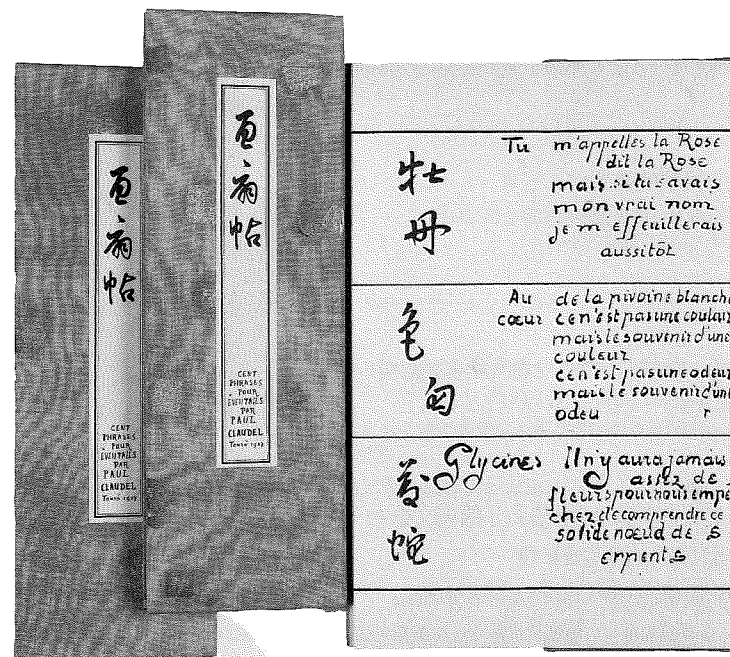 百
扇
帖
CENT
PHRASES
POUR
EVENTAILS
PAR
PAUL
CLAUDEL
百
扇
帖
CENT
PHRASES
POUR
EVENTAILS
PAR
PAUL
CLAUDEL
牡
丹
Tu m'appelles la Rose
dit la Rose
mais si tu savais
mon vrai nom
je m'effeuillerais
aussitôt
色
匂
Au de la pivoine blanche
cœur ce n'est pas une couleur
mais le souvenir d'une
couleur
ce n'est pas une odeur
mais le souvenir d'une
odeu r
蛇
Glycines Il n'y aura jamais
assez de
fleurs pour nous empê
cher de comprendre ce
solide nœud de s
erpents